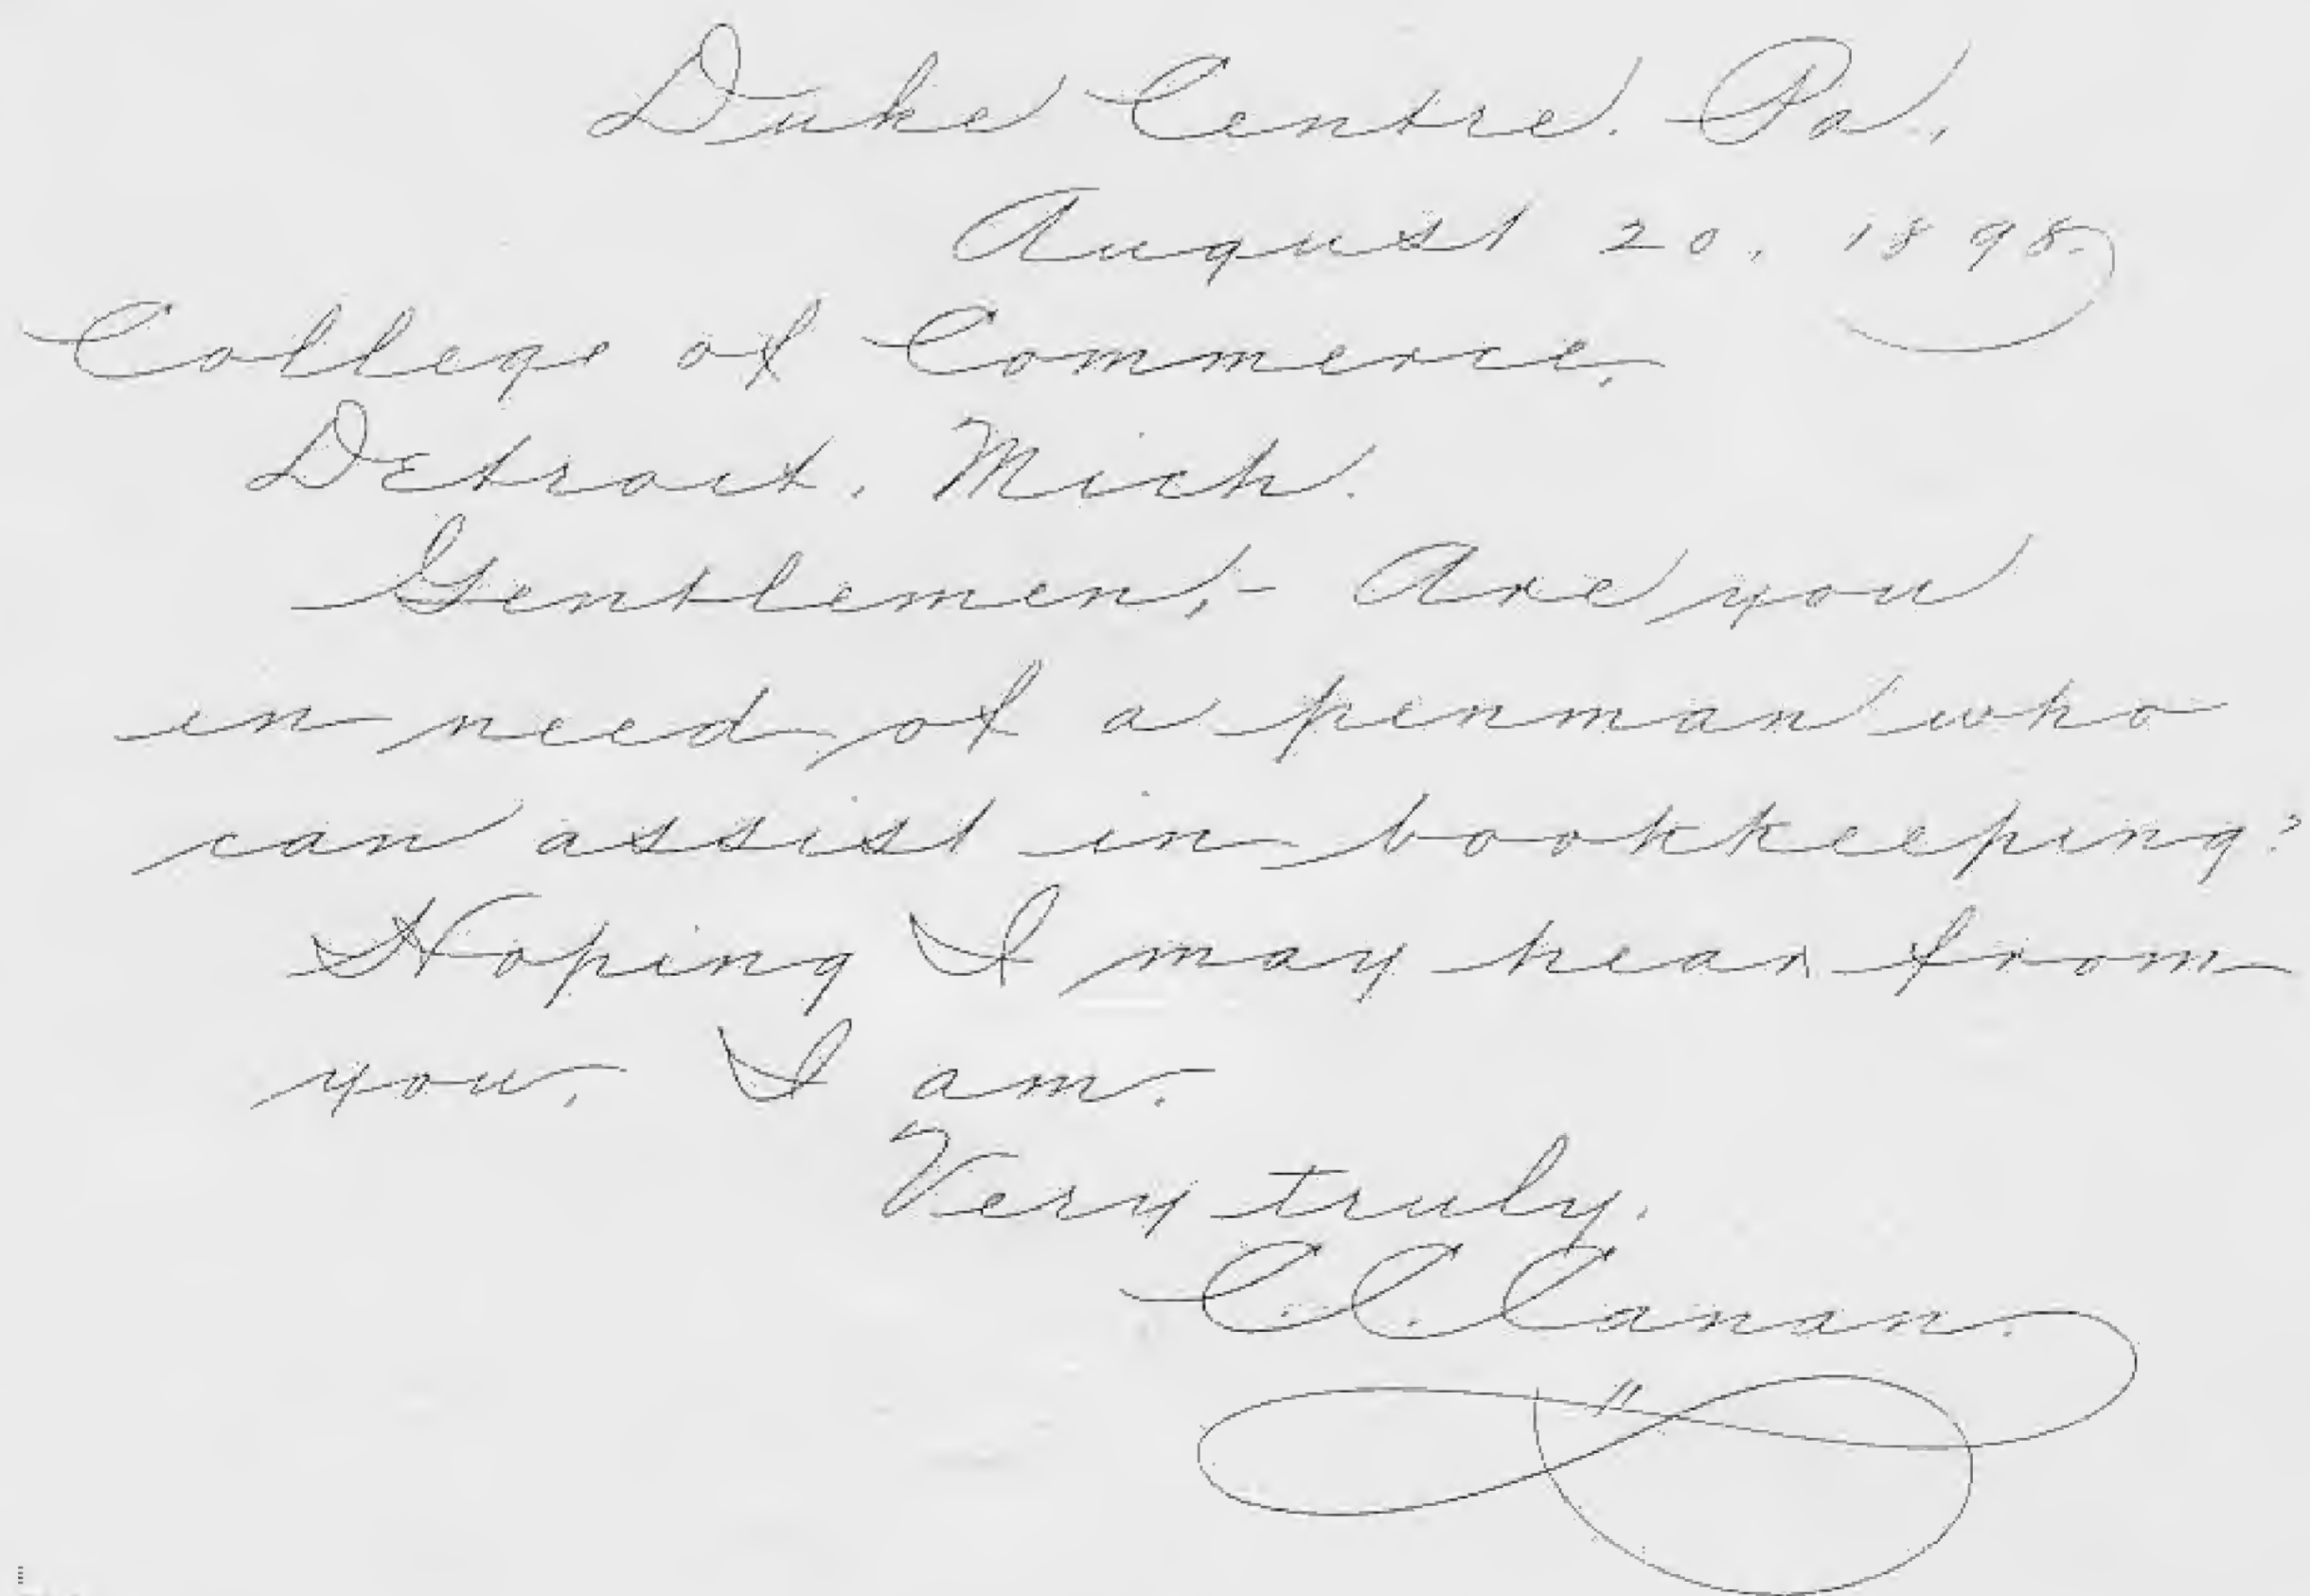 Duke Centre. Pa.,
August 20, 1898.
College of Commerce,
Detroit, Mich.
Gentlemen,- Are you
in need of a penman who
can assist in bookkeeping?
Hoping I may hear from
you, I am,
Very truly,
C. C. Canan.